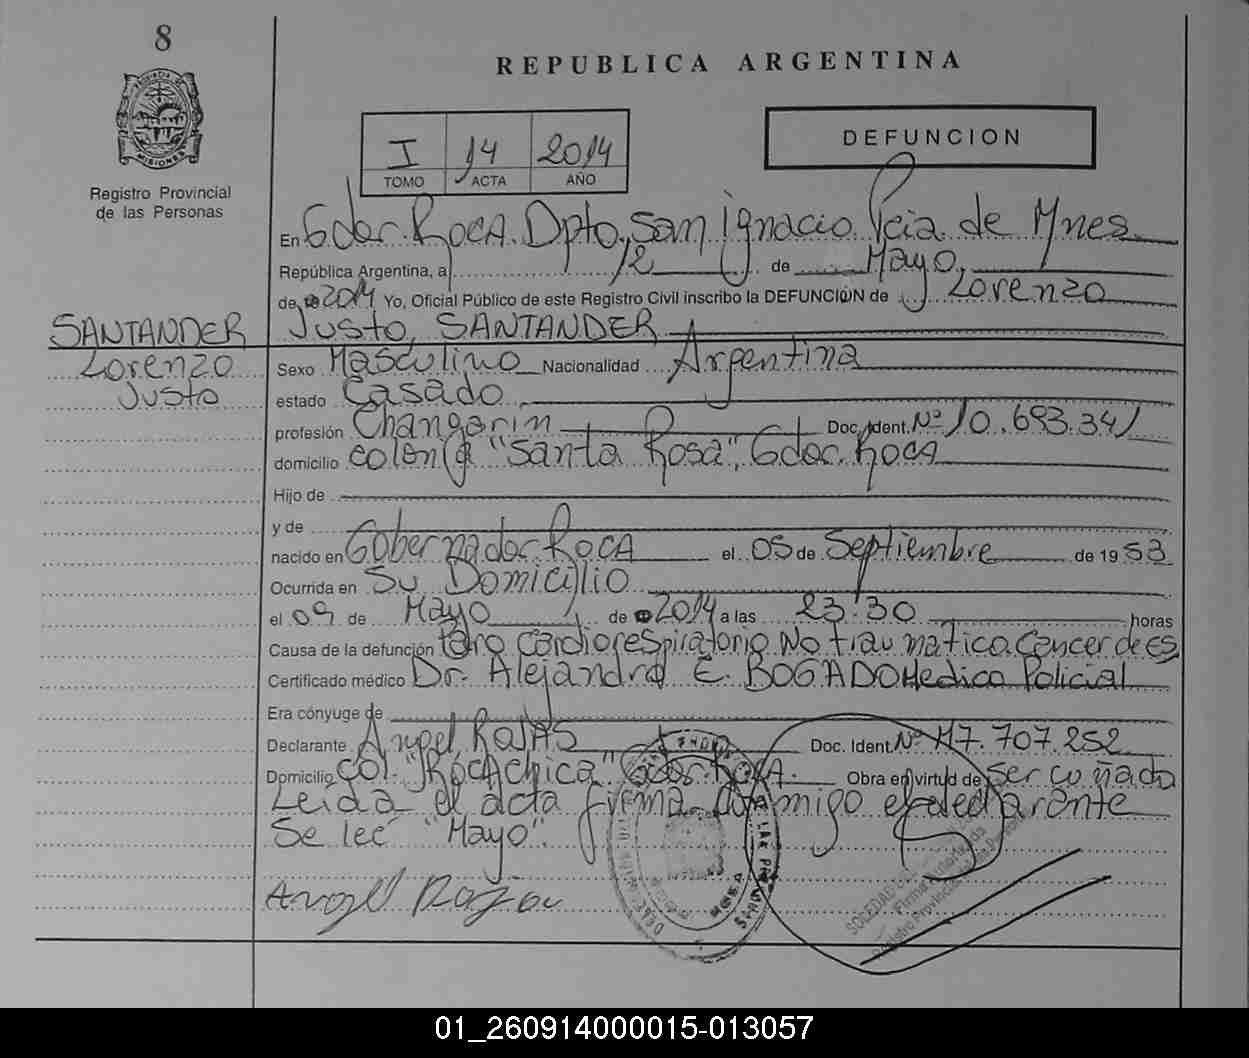 8
REPUBLICA ARGENTINA
I 14 2014
TOMO ACTA AÑO
DEFUNCION
MISIONES
Registro Provincial
de las Personas
En Gdor. Roca. Dpto, San Ignacio. Pcia. de Mnes.
República Argentina, a 12 de Mayo,
de 2014 Yo, Oficial Público de este Registro Civil inscribo la DEFUNCIÓN de Lorenzo
Justo, SANTANDER
SANTANDER
Lorenzo
Justo
Sexo Masculino Nacionalidad Argentina
estado Casado
profesión Changarin Doc. Ident. Nº 10.693.341
domicilio colonia "Santa Rosa", Gdor. Roca
Hijo de
y de
nacido en Gobernador Roca el 05 de Septiembre de 1953
Ocurrida en Su Domicilio
el 09 de Mayo de 2014 a las 23:30 horas
Causa de la defunción Paro Cardiorespiratorio No traumatico. Cancer de Es
Certificado médico Dr. Alejandro E. BOGADO Medico Policial
Era cónyuge de
Declarante Angel, Rojas Doc. Ident. Nº M7.707.252
Domicilio Col. "Roca Chica" Gdor. Roca. Obra en virtud de ser cuñado
Leida el acta firma conmigo el declarante
Se leé "Mayo".
Angel Rojas
SOLEDAD
Firma Autorizada
Registro Provincial
01_260914000015-013057